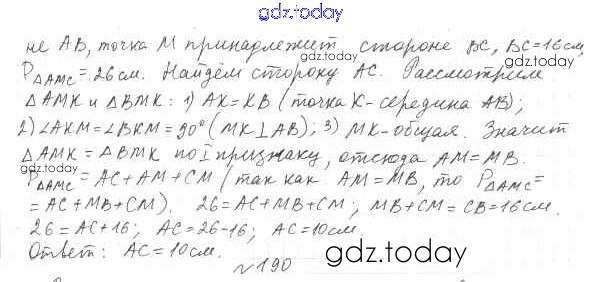 gdz.today
не AB, точка M принадлежит стороне BC, BC=16см,
gdz.today gdz.today
P△AMC=26см. Найдём сторону AC. Рассмотрим
△AMK и △BMK: 1) AK=KB (точка K- середина AB);
2) ∠AKM=∠BKM=90° (MK⊥AB); 3) MK-общая. Значит
△AMK=△BMK по I признаку, отсюда AM=MB.
gdz.today gdz.today
P△AMC=AC+AM+CM (так как AM=MB, то P△AMC=
=AC+MB+CM). 26=AC+MB+CM; MB+CM=CB=16см.
26=AC+16; AC=26-16; AC=10см.
Ответ: AC=10см.
gdz.today
№190